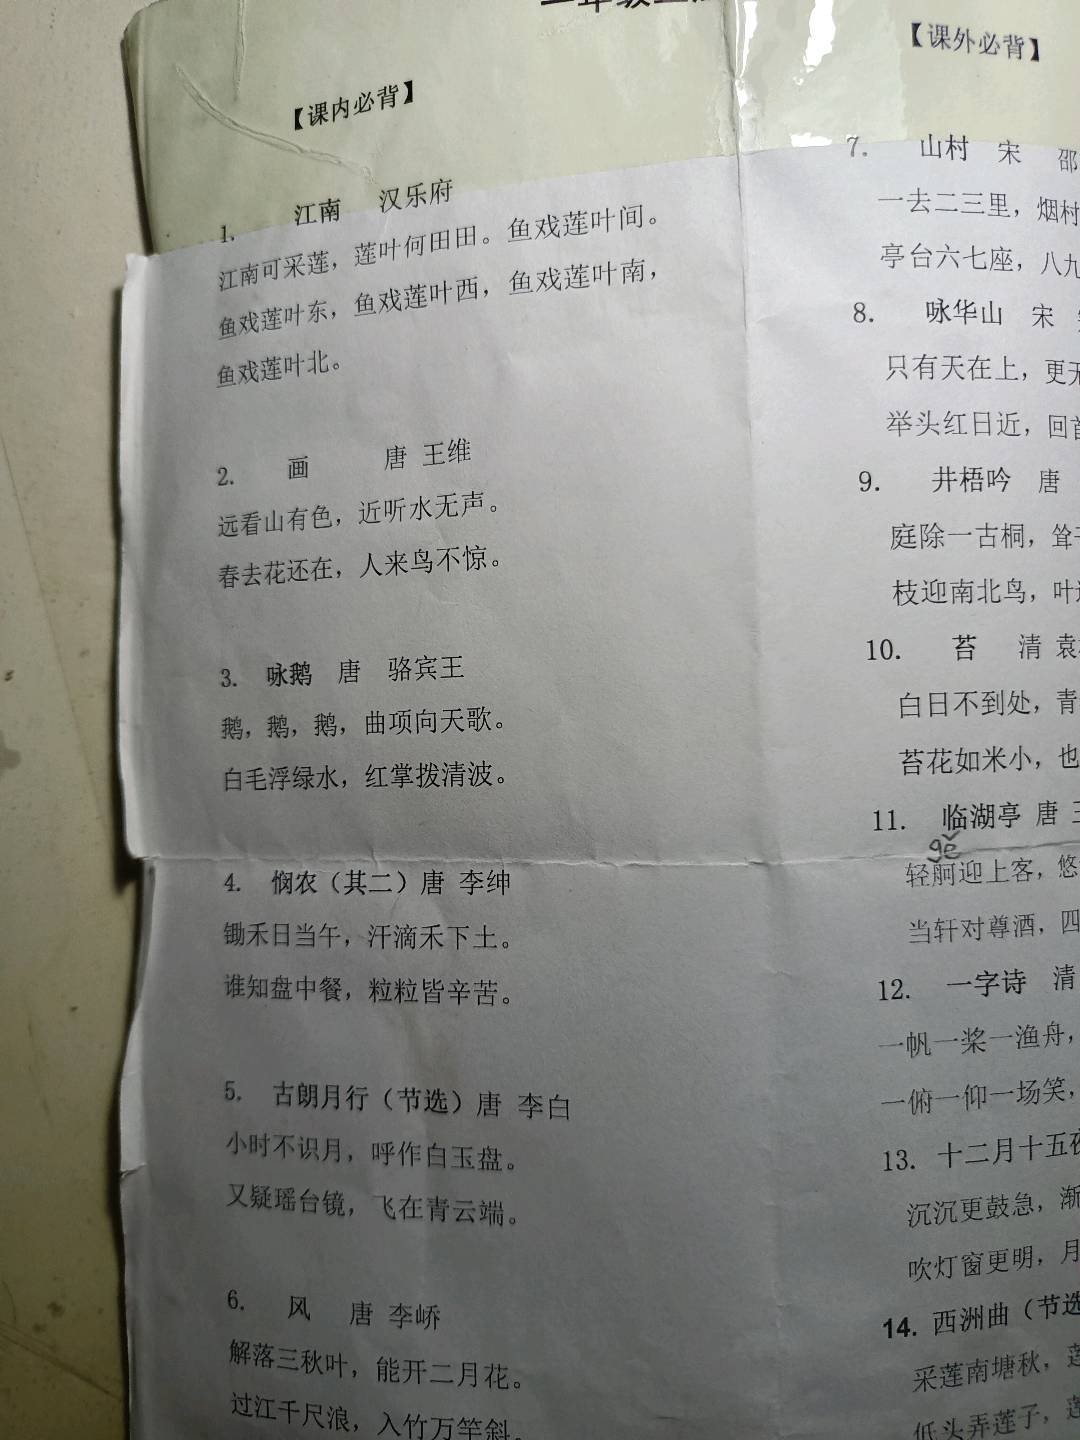 【课内必背】
1. 江南 汉乐府
江南可采莲，莲叶何田田。鱼戏莲叶间。
鱼戏莲叶东，鱼戏莲叶西，鱼戏莲叶南，
鱼戏莲叶北。
2. 画 唐 王维
远看山有色，近听水无声。
春去花还在，人来鸟不惊。
3. 咏鹅 唐 骆宾王
鹅，鹅，鹅，曲项向天歌。
白毛浮绿水，红掌拨清波。
4. 悯农（其二）唐 李绅
锄禾日当午，汗滴禾下土。
谁知盘中餐，粒粒皆辛苦。
5. 古朗月行（节选）唐 李白
小时不识月，呼作白玉盘。
又疑瑶台镜，飞在青云端。
6. 风 唐 李峤
解落三秋叶，能开二月花。
过江千尺浪，入竹万竿斜。
【课外必背】
7. 山村 宋 邵
一去二三里，烟村
亭台六七座，八九
8. 咏华山 宋
只有天在上，更无
举头红日近，回首
9. 井梧吟 唐
庭除一古桐，耸干
枝迎南北鸟，叶送
10. 苔 清 袁
白日不到处，青
苔花如米小，也
11. 临湖亭 唐 王
gě
轻舸迎上客，悠
当轩对尊酒，四
12. 一字诗 清
一帆一桨一渔舟，
一俯一仰一场笑，
13. 十二月十五夜
沉沉更鼓急，渐
吹灯窗更明，月
14. 西洲曲（节选
采莲南塘秋，莲
低头弄莲子，莲